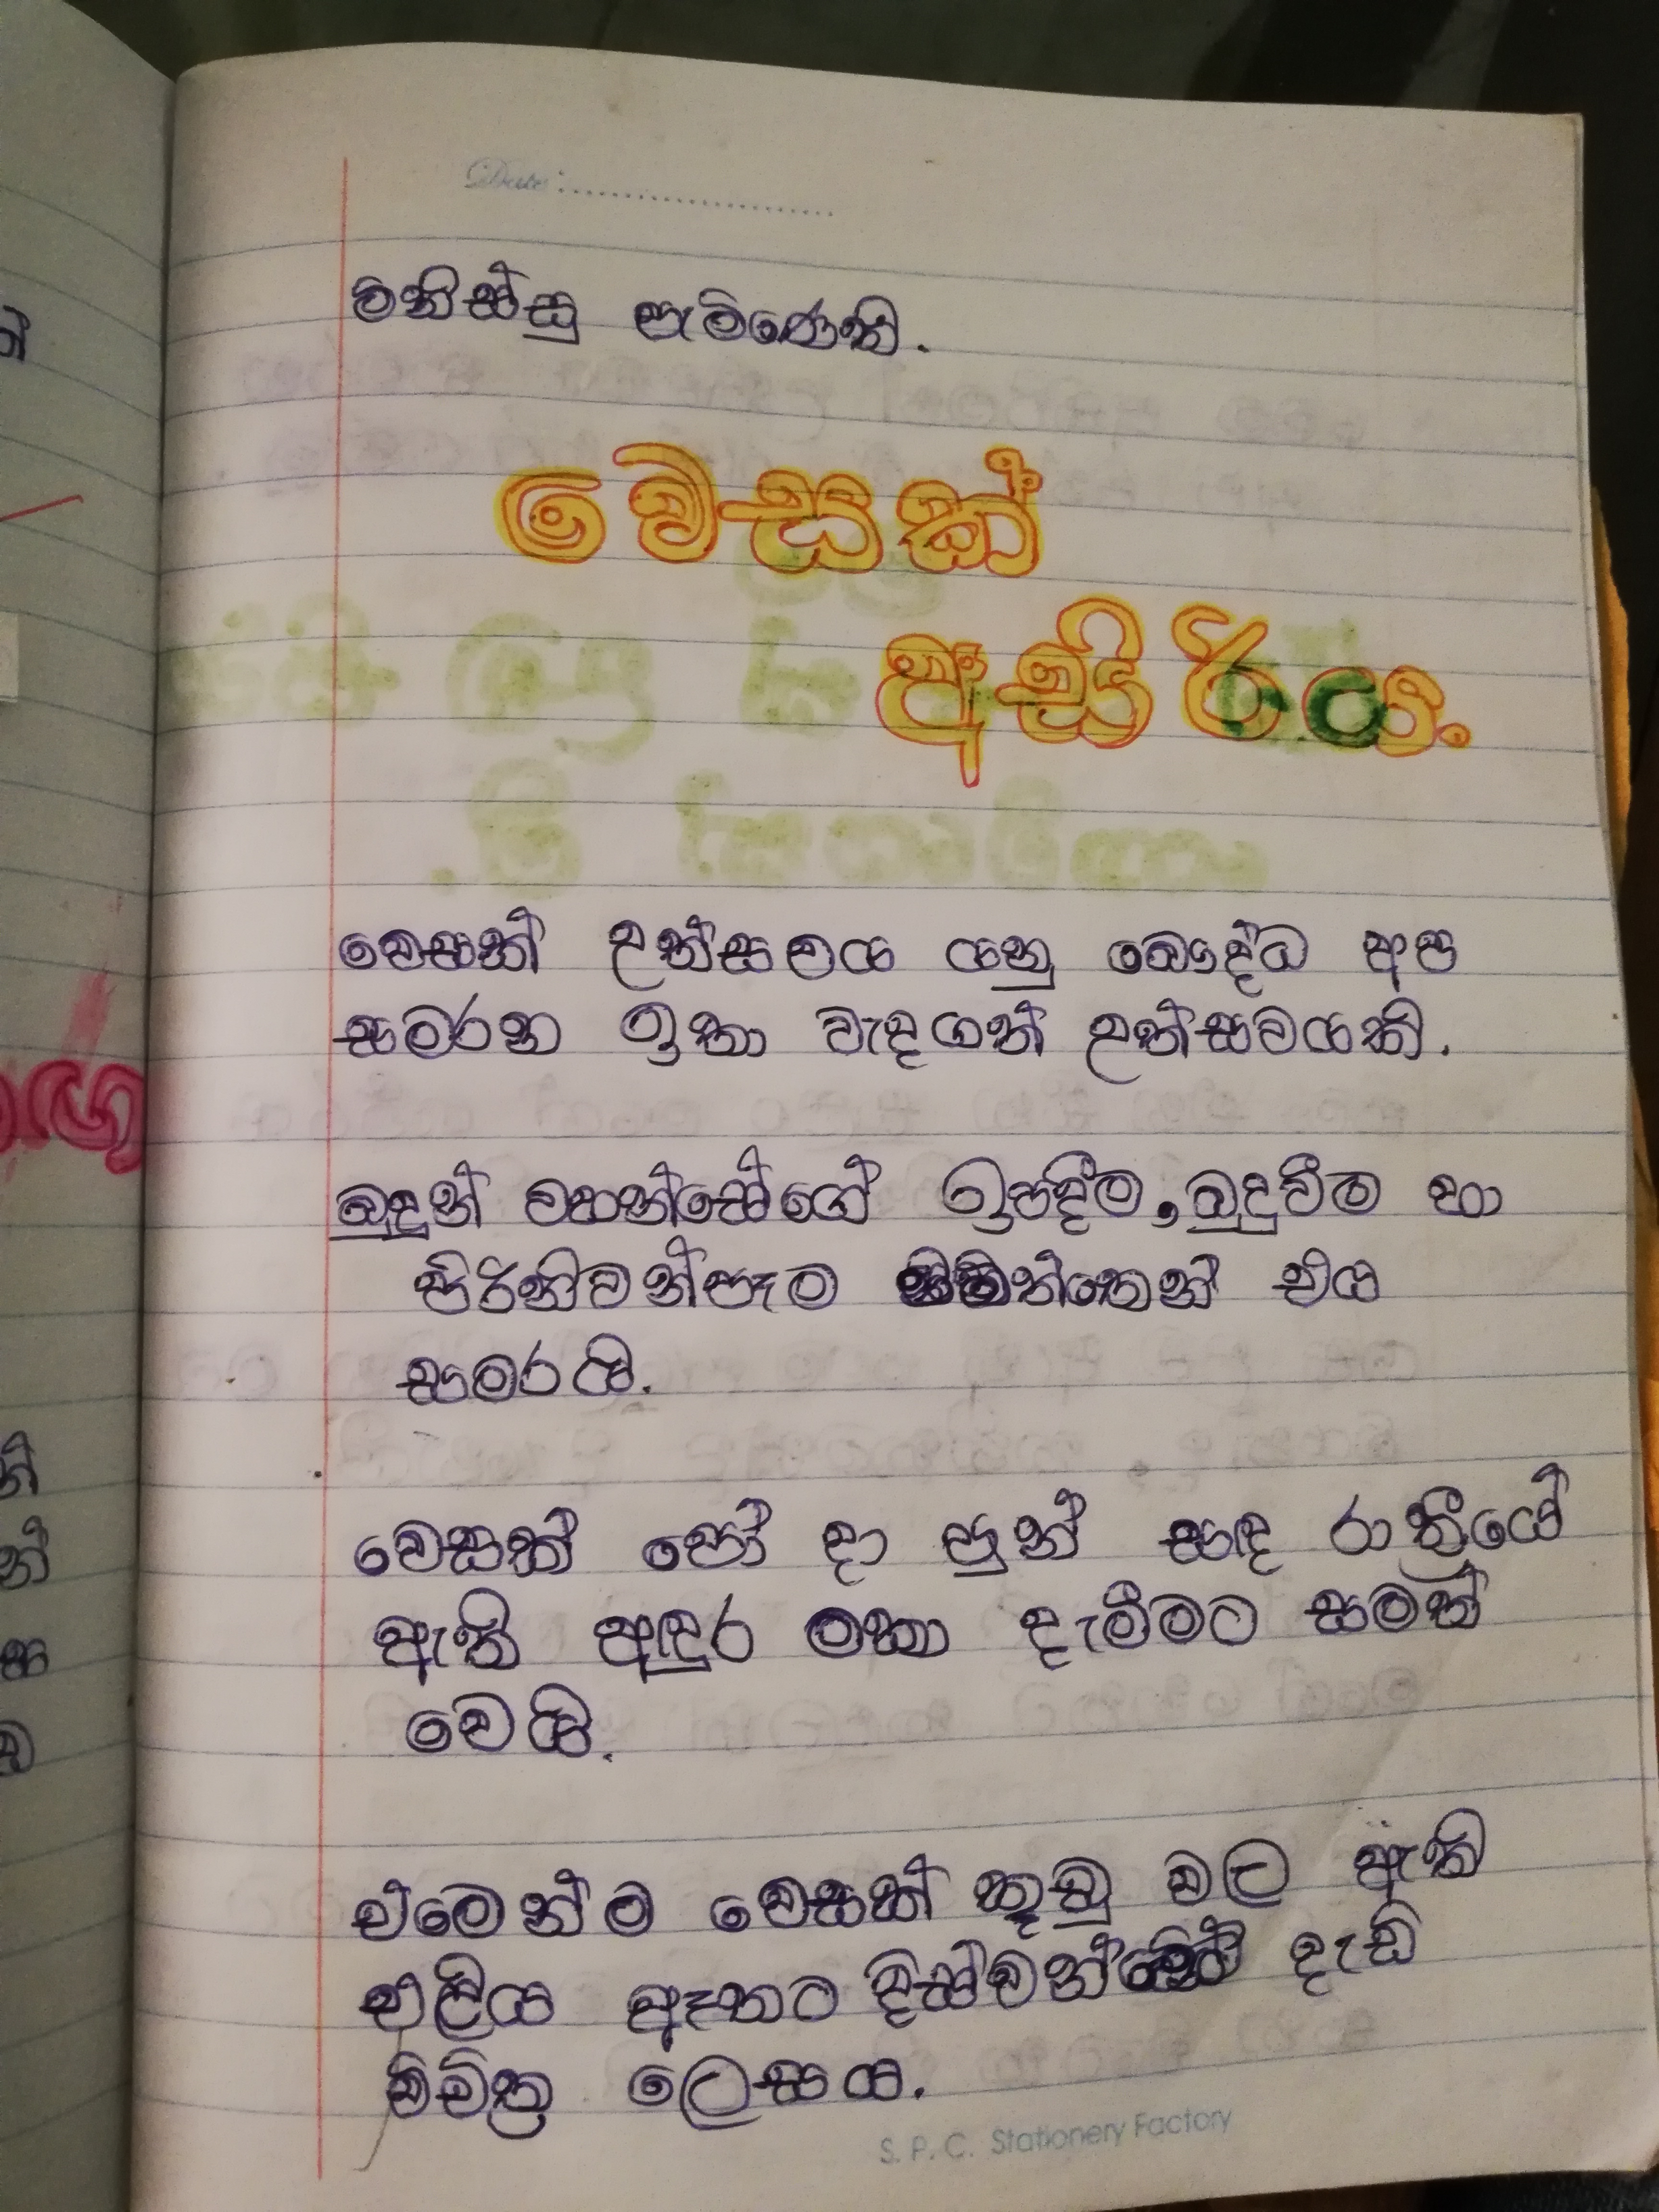 Date:
මිනිස්සු පැමිණෙති.
වෙසක්
අසිරිය.
වෙසක් උත්සවය යනු බෞද්ධ අප
සමරන ඉතා වැදගත් උත්සවයකි.
බුදුන් වහන්සේගේ ඉපදීම, බුදුවීම හා
පිරිනිවන්පෑම සිහිපත් එය
සමරයි.
වෙසක් පෝ දා පුන් සඳ රාත්‍රියේ
ඇති අඳුර මකා දැමීමට සමත්
වෙයි.
එමෙන්ම වෙසක් කූඩු වල ඇති
එළිය ඈතට දැඩි
විචිත්‍ර ලෙසය.
S. P. C. Stationery Factory